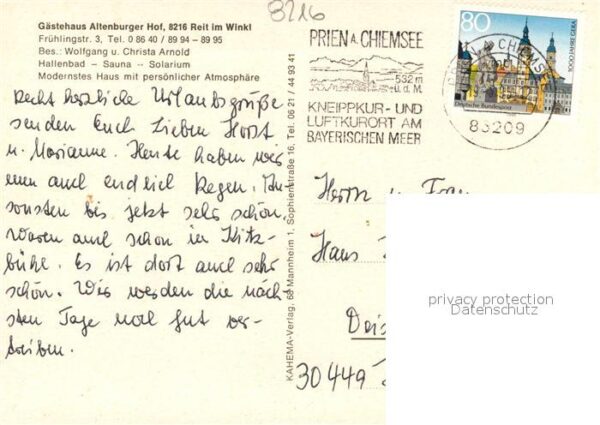 8216
Gästehaus Altenburger Hof, 8216 Reit im Winkl
Frühlingstr. 3, Tel. 0 86 40 / 89 94 – 89 95
Bes.: Wolfgang u. Christa Arnold
Hallenbad – Sauna – Solarium
Modernstes Haus mit persönlicher Atmosphäre
Recht herzliche Urlaubsgrüße
senden Euch Lieben Horst
u. Marianne. Heute haben wir
nun auch endlich Regen. An-
sonsten bis jetzt sehr schön.
Waren auch schon in Kitz-
bühl. Es ist dort auch sehr
schön. Wir werden die näch-
sten Tage noch gut ver-
treiben.
KAHEMA-Verlag, 68 Mannheim 1, Sophienstraße 16, Tel. 06 21 / 44 93 41
PRIEN A. CHIEMSEE
532 m
ü. d. M.
KNEIPPKUR- UND
LUFTKURORT AM
BAYERISCHEN MEER
CHIEMS
83209
80
1000 JAHRE GERA
Deutsche Bundespost
Herrn u. Frau
Hans
30449
privacy protection
Datenschutz